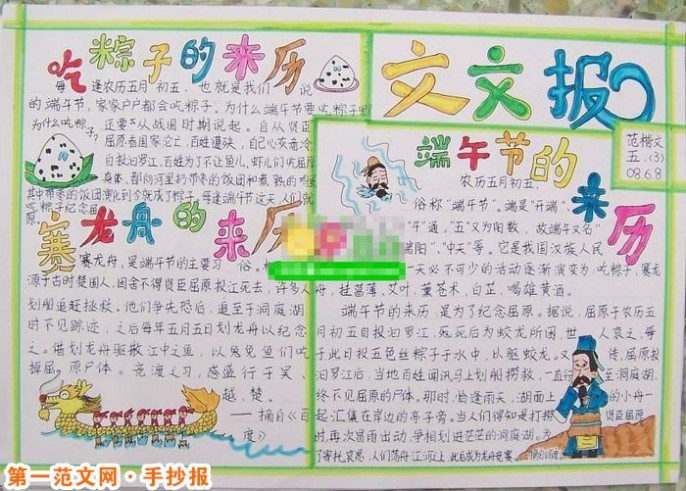 吃粽子的来历
每逢农历五月初五,也就是我们说
的端午节,家家户户都会吃粽子。为什么端午节要吃粽子
为什么吃粽子,还要从战国时期说起。自从贤臣
屈原看国家沦亡,百姓遭殃,自己心灰意冷
自投汨罗江,百姓为了不让鱼儿,虾儿们吃屈原
身体,都向河里扔带枣的饭团和煮熟的鸡蛋
其中带枣的饭团演化到今就成了粽子,每逢端午节这天人们就
吃粽子纪念屈
原。
赛龙舟的来历
赛龙舟,是端午节的主要习俗。
源于古时楚国人,因舍不得贤臣屈原投江死去,许多人
划船追赶拯救。他们争先恐后,追至于洞庭湖
时不见踪迹,之后每年五月五日划龙舟以纪念
之。借划龙舟驱散江中之鱼,以免鱼们吃
掉屈原尸体。竞渡之习,感盛行于吴、
越、楚。
——摘自《百
度》
文文报
范楷文
五.(3)
08.6.8
端午节的来历
农历五月初五,
俗称"端午节"。端是"开端"、
"午"通,"五"又为阳数,故端午又名"
端阳"、"中天"等。它是我国汉族人民
一大必不可少的活动逐渐演变为:吃粽,赛龙
舟,挂菖蒲、艾叶,董苍术、白芷,喝雄黄酒。
端午节的来历,是为了纪念屈原。据说,屈原于农历五
月初五自投汨罗江,死后为蛟龙所困,世人哀之,每
于此日投五色丝粽子于水中,以驱蛟龙。又
传,屈原投
汨罗江后,当地百姓闻讯马上划船捞救,一直行
至洞庭湖,
终不见屈原的尸体。那时,恰逢雨天,湖面上
的小舟一
起汇集在岸边的亭子旁。当人们得知是打捞
贤臣屈原
时,再次冒雨出动,争相划进茫茫的洞庭湖。为
了寄托哀思,人们荡舟江河上,此后成为龙舟竞赛。
第一范文网·手抄报